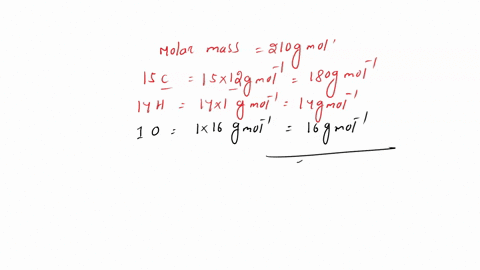 Molar mass = 210 g mol⁻¹
15 C = 15 × 12 g mol⁻¹ = 180 g mol⁻¹
14 H = 14 × 1 g mol⁻¹ = 14 g mol⁻¹
1 O = 1 × 16 g mol⁻¹ = 16 g mol⁻¹